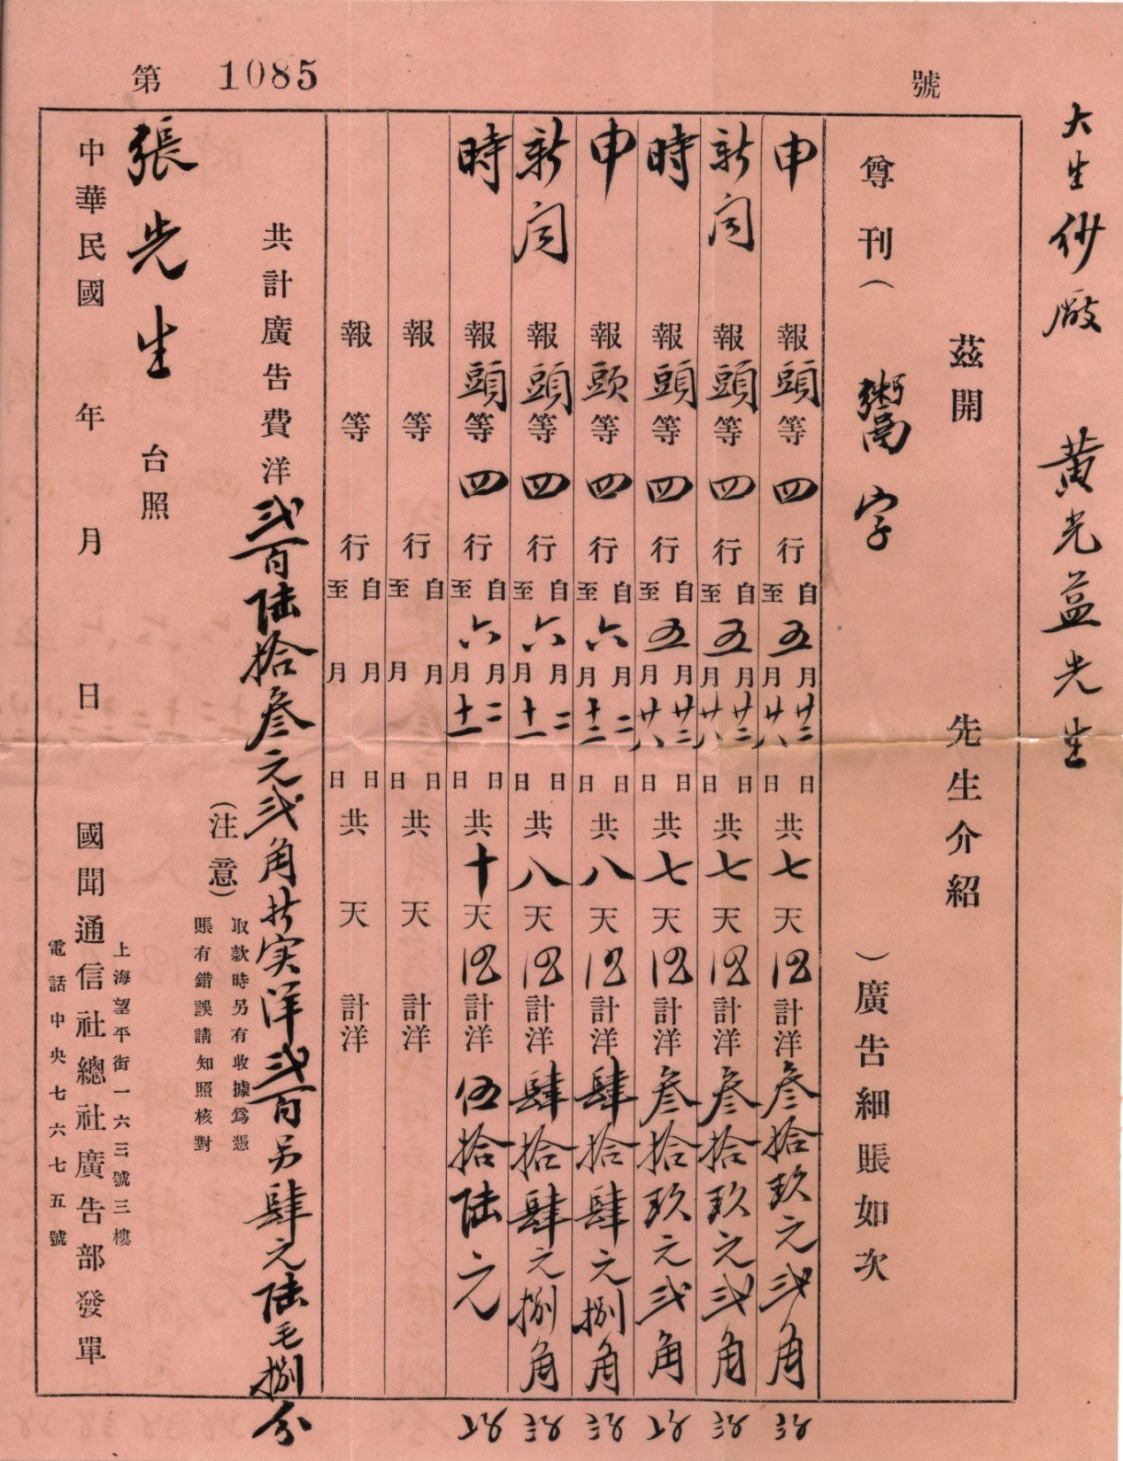 第 1085 號
大生纱廠 黃光益先生
茲開 先生介紹
尊刊（鬻字）廣告細賬如次
申報頭等四行自五月廿三日至月廿八日共七天計洋叁拾玖元弍角
新闻報頭等四行自五月廿三日至月廿八日共七天計洋叁拾玖元弍角
時報頭等四行自五月廿三日至月廿八日共七天計洋叁拾玖元弍角
申報頭等四行自六月二日至月十二日共八天計洋肆拾肆元捌角
新闻報頭等四行自六月二日至月十一日共八天計洋肆拾肆元捌角
時報頭等四行自六月二日至月十一日共十天計洋伍拾陆元
報等行自月日至月日共天計洋
報等行自月日至月日共天計洋
共計廣告費洋弍百陆拾叁元弍角 实洋弍百另肆元陆毛捌分
（注意）取款時另有收據爲憑
賬有錯誤請知照核對
張先生 台照
上海望平街一六三號三樓
中華民國 年 月 日 國聞通信社總社廣告部發單
電話中央七六七五號